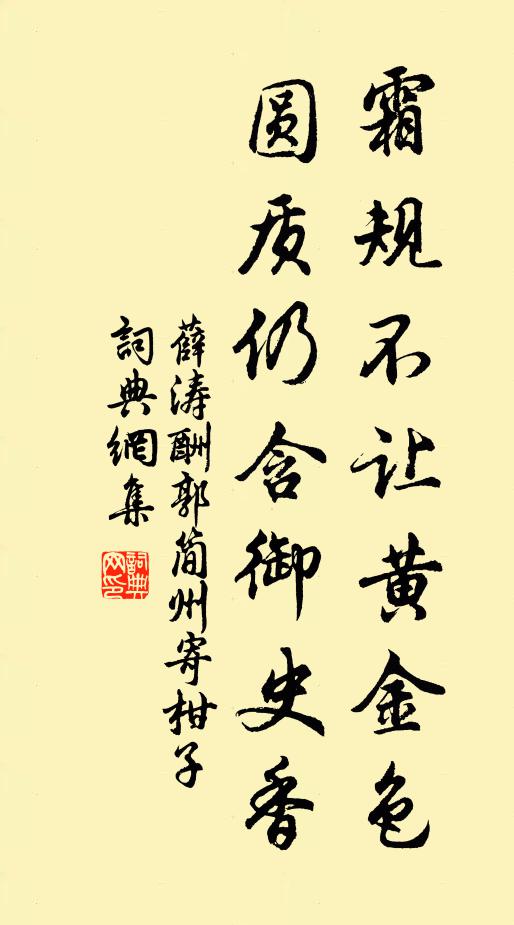 霜规不让黄金色
圆质仍含御史香
薛涛酬郭简州寄柑子
詞典網集
詞典网印